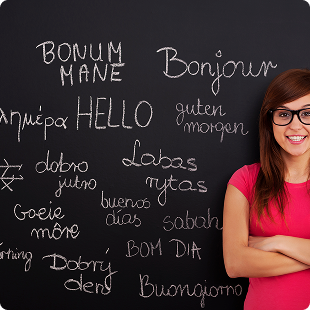 BONUM
MANE
Bonjour
λημέρα
HELLO
guten
morgen
dobro
jutro
Labas
rytas
Goeie
môre
buenos
días
sabah
BOM DIA
Dobrý
den
Buongiorno